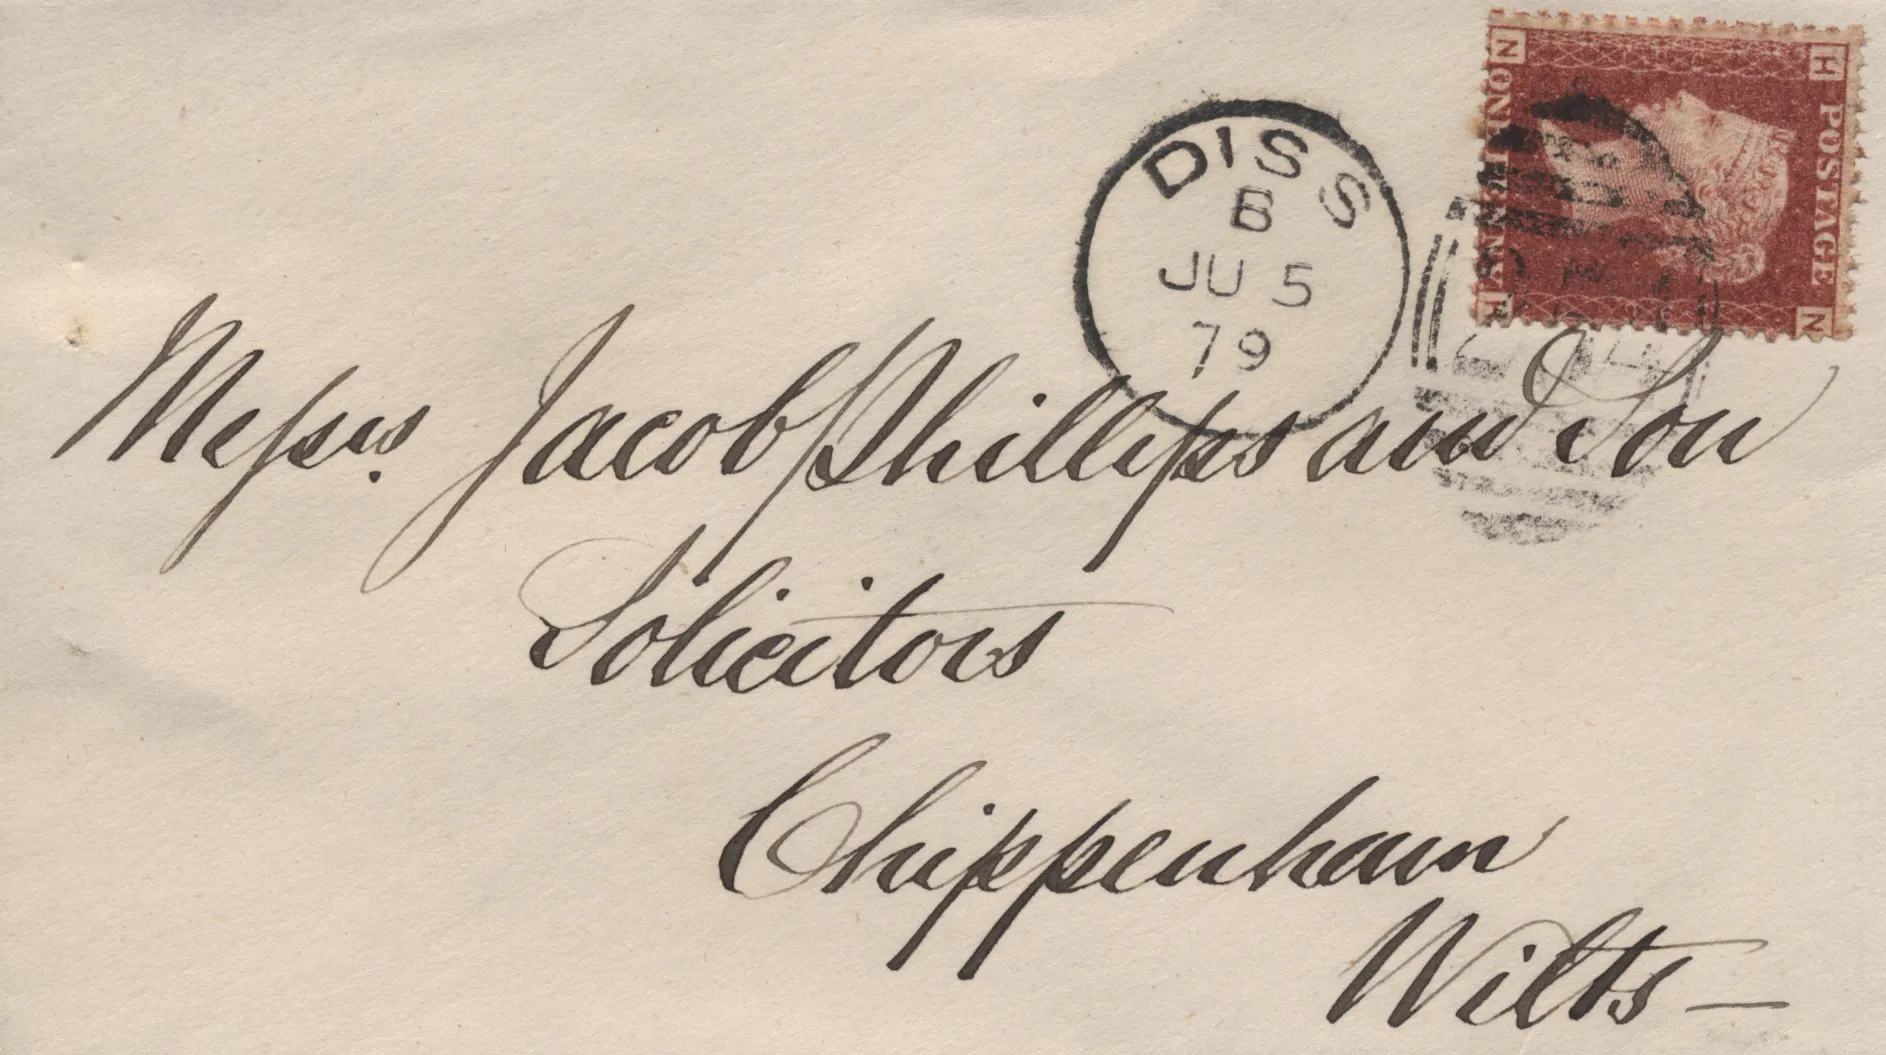 DISS
B
JU 5
79
N H
POSTAGE
ONE PENNY
H N
Messrs. Jacob Phillips and Son
Solicitors
Chippenham
Wilts —